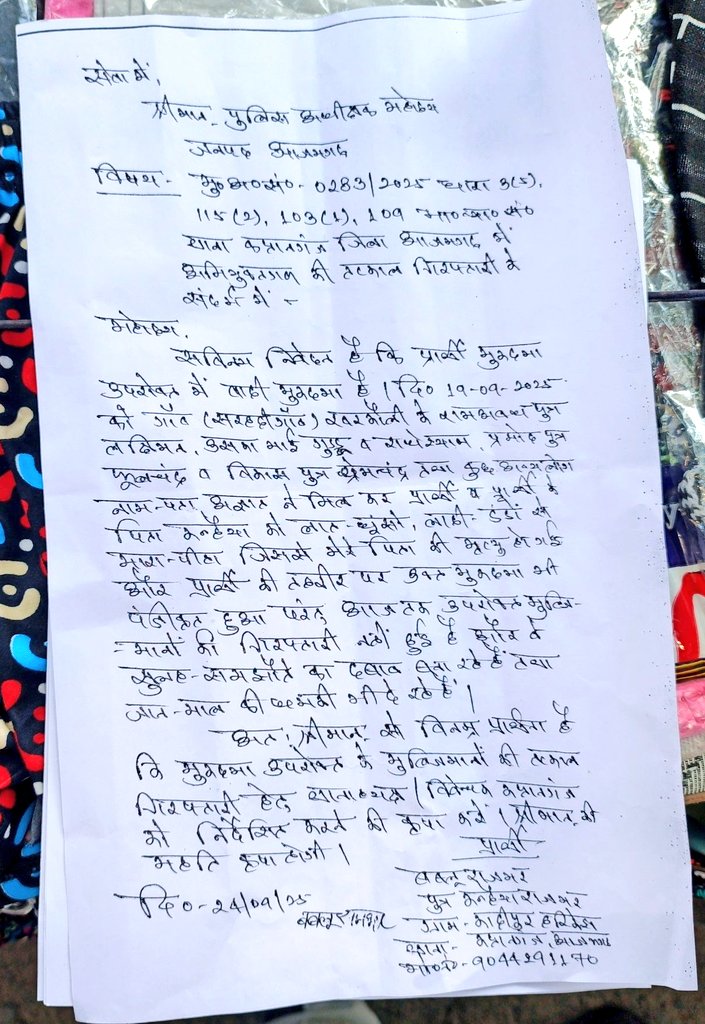 सेवा में,
श्रीमान् पुलिस अधीक्षक महोदय
जनपद आजमगढ़
विषय - मु०अ०सं०- 0283/2025 धारा 3(5),
115(2), 103(1), 109 भा०न्या०सं०
थाना कप्तानगंज जिला आजमगढ़ में
अभियुक्तगण की तत्काल गिरफ्तारी के
संदर्भ में -
महोदय,
सविनय निवेदन है कि प्रार्थी मुकदमा
उपरोक्त में वादी मुकदमा है। दि० 19-09-2025
को गाँव (सरहदी गाँव) के पुत्र
उसका भाई गुड्डू व राधेश्याम, प्रमोद पुत्र
फूलचंद व विकास पुत्र प्रेमचंद्र तथा कुछ अन्य लोग
नाम-पता अज्ञात ने मिल कर प्रार्थी व प्रार्थी के
पिता कन्हैया को लात-घूंसो, लाठी-डंडों से
मारा-पीटा जिससे मेरे पिता की मृत्यु हो गई
और प्रार्थी की तहरीर पर उक्त मुकदमा भी
पंजीकृत हुआ परंतु आज तक उपरोक्त मुल्जि-
-मानों की गिरफ्तारी नहीं हुई है और वे
सुलह-समझौते का दबाव बना रहे हैं तथा
जान-माल की धमकी भी दे रहे हैं।
अतः श्रीमान् से विनम्र प्रार्थना है
कि मुकदमा उपरोक्त के मुल्जिमानों की तत्काल
गिरफ्तारी हेतु थानाध्यक्ष / विवेचक कप्तानगंज
को निर्देशित करने की कृपा करें। श्रीमान् की
महति कृपा होगी।
प्रार्थी
बबलू राजभर
पुत्र कन्हैया राजभर
दि०-24/09/25
बबलू राजभर
ग्राम-
थाना- कप्तानगंज, आजमगढ़
मो०नं०-9044291170